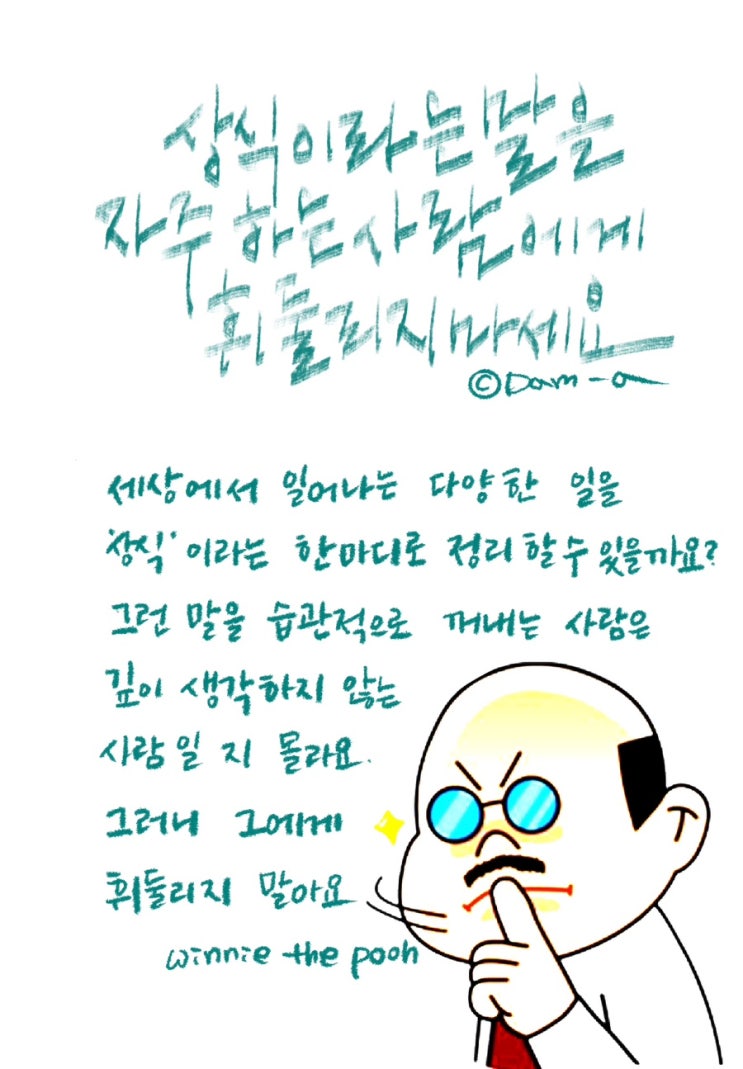 상식이라는 말을
자주 하는 사람에게
휘둘리지 마세요
©Dam-a
세상에서 일어나는 다양한 일을
'상식'이라는 한마디로 정리할 수 있을까요?
그런 말을 습관적으로 꺼내는 사람은
깊이 생각하지 않는
사람일 지 몰라요.
그러니 그에게
휘둘리지 말아요
winnie the pooh